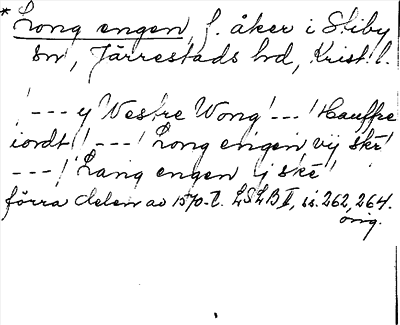 * Long engen, f. åker i Stiby
sn, Järrestads hd, Krist. l.
! --- y Westre Wong! --- ! Hauffue
iordt! --- ! Long engen vij skr!
--- ! Lang engen ij skr!
förra delen av 1570-t. LSLB II, s. 262, 264.
orig.